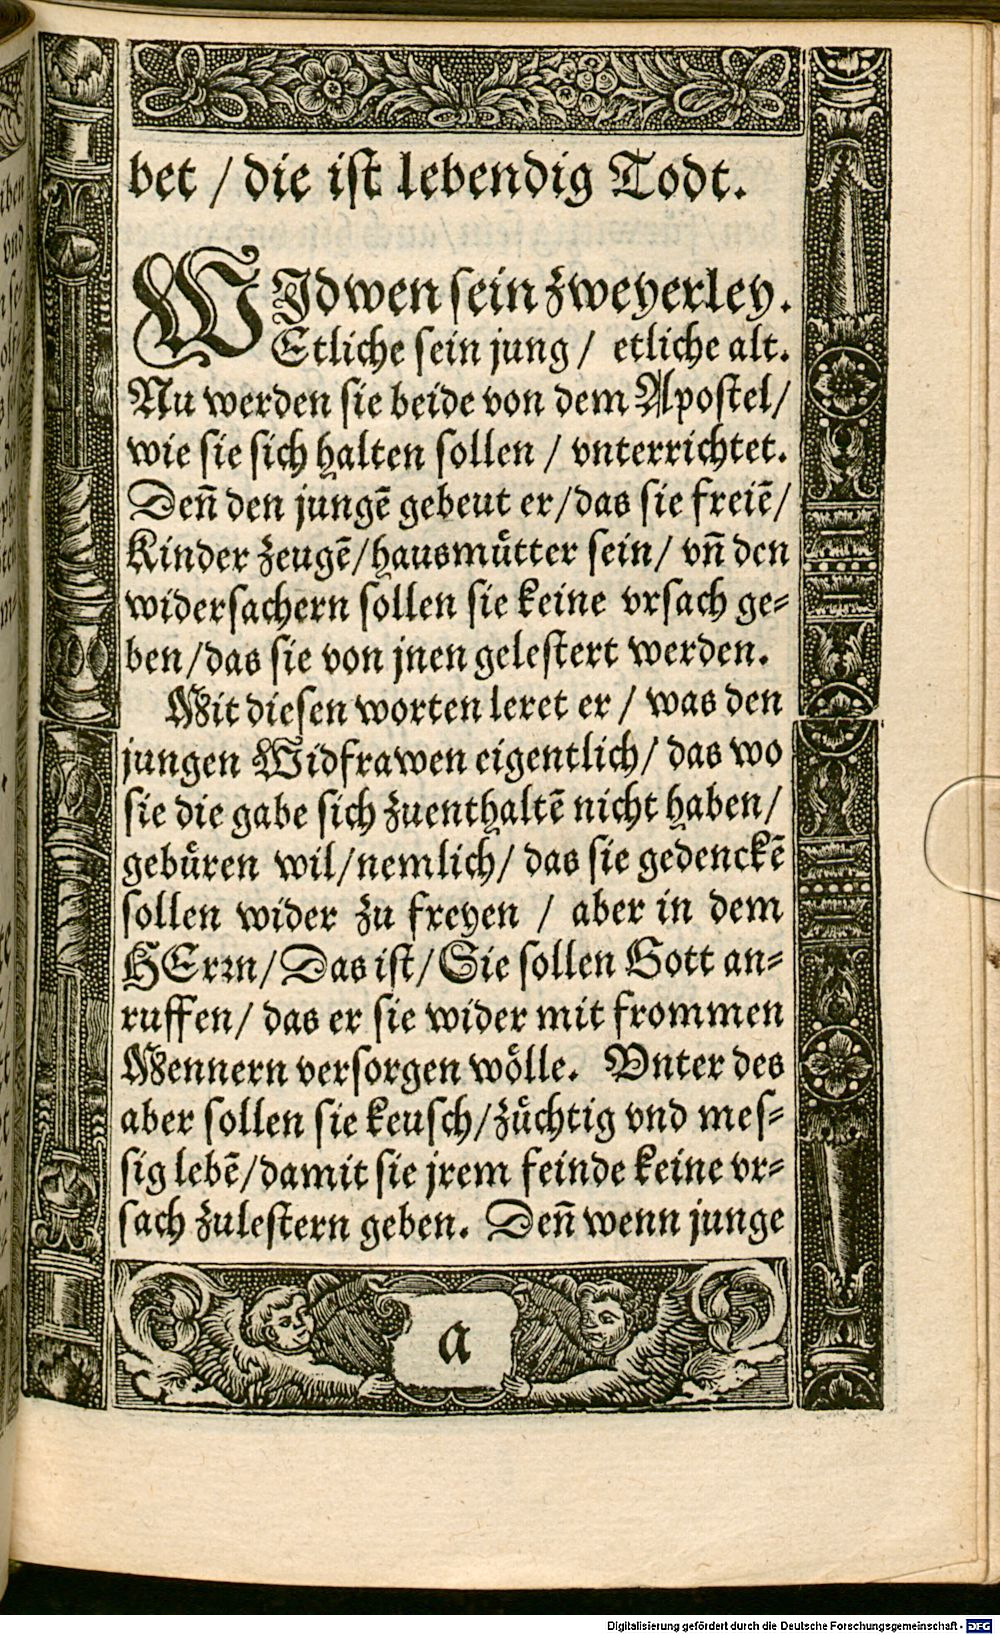 bet / die iſt lebendig Todt.
WIdwen ſein zweyerley.
Etliche ſein jung / etliche alt.
Nu werden ſie beide von dem Apoſtel /
wie ſie ſich halten ſollen / vnterrichtet.
Deñ den jungē gebeut er / das ſie freiē /
Kinder zeugē / hausmuͤtter ſein / vñ den
widerſachern ſollen ſie keine vrſach ge⸗
ben / das ſie von jnen geleſtert werden.
Mit dieſen worten leret er / was den
jungen Widfrawen eigentlich / das wo
ſie die gabe ſich zuenthaltē nicht haben /
gebuͤren wil / nemlich / das ſie gedenckē
ſollen wider zu freyen / aber in dem
HErꝛn / Das iſt / Sie ſollen Gott an⸗
ruffen / das er ſie wider mit frommen
Mennern verſorgen woͤlle. Vnter des
aber ſollen ſie keuſch / zuͤchtig vnd meſ⸗
ſig lebē / damit ſie jrem feinde keine vr⸗
ſach zuleſtern geben. Deñ wenn junge
a
Digitalisierung gefördert durch die Deutsche Forschungsgemeinschaft - DFG